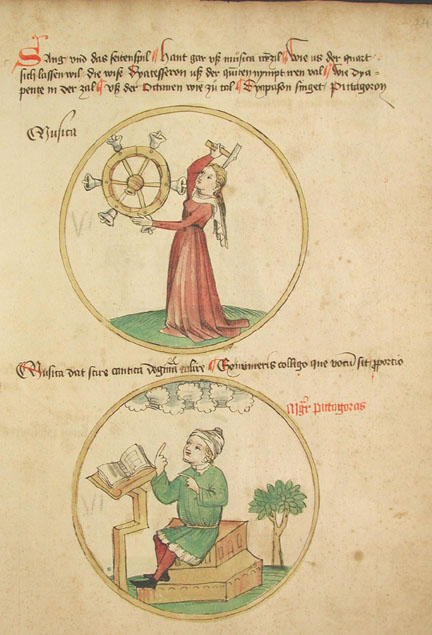 Sang vnd das seitenspil hant gar vß musica ir zil Wie us der quart
sich lassen wil die wise Dyatesseron vß der quinten nympt iren val Wie dya-
pente in der zal vß der Octauen wie zu tal Dyapason singet Pittagoras
Musica
Musica dat scire cantica E numeris colligo que vocum sit proportio
Mgr Pittagoras